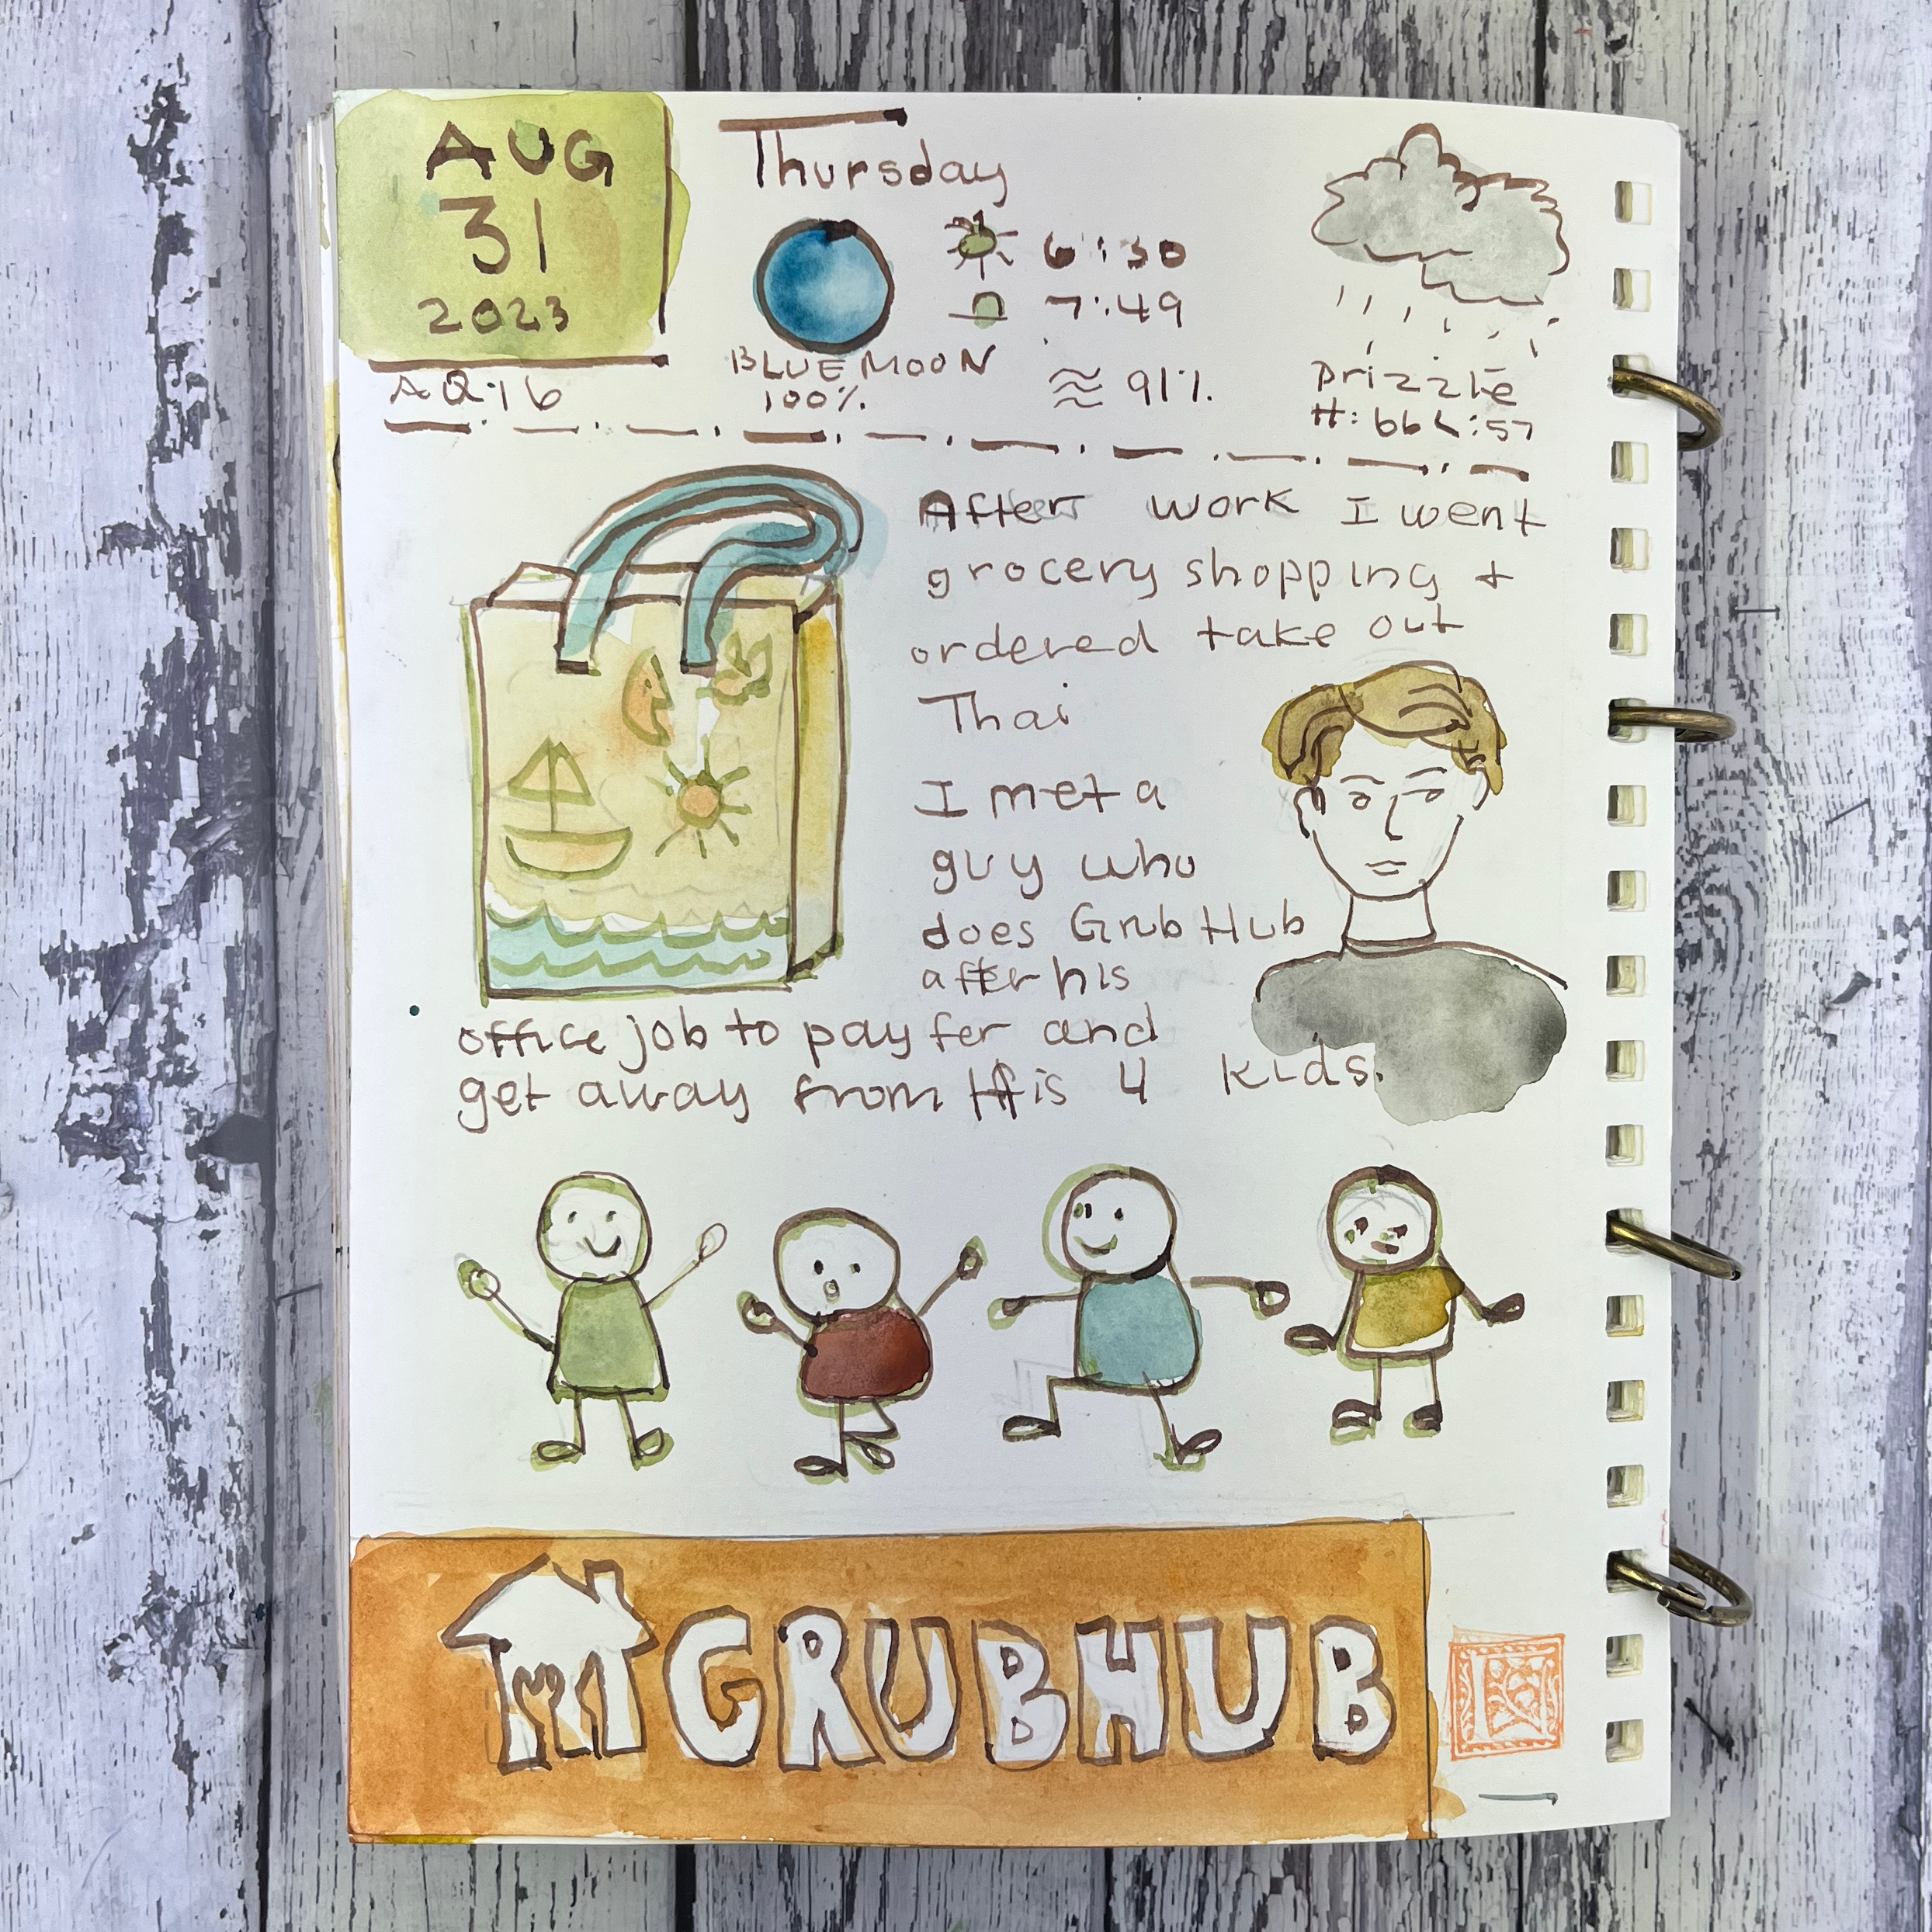 AUG
31
2023
AQ:16
Thursday
6:30
7:49
BLUE MOON
100%
91%
Drizzle
H: 66 L: 57
After work I went
grocery shopping +
ordered take out
Thai
I met a
guy who
does GrubHub
after his
office job to pay fer and
get away from His 4 kids.
GRUBHUB